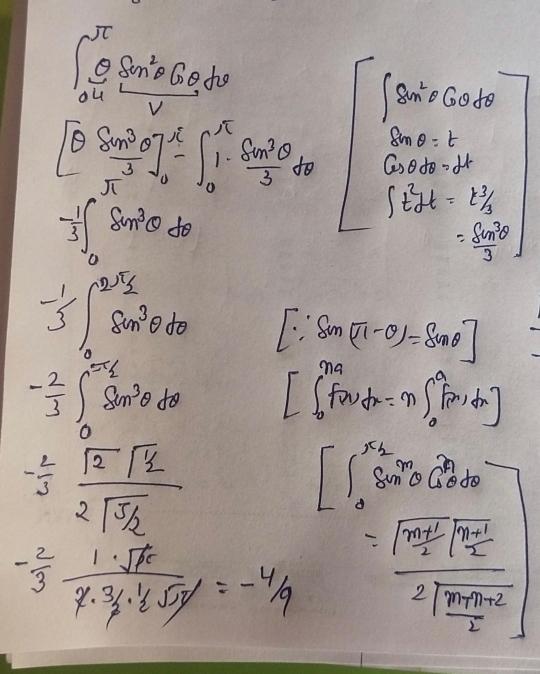 ∫₀^π θ Sin²θ Cosθ dθ
u v
[θ Sin³θ/3]₀^π - ∫₀^π 1. Sin³θ/3 dθ
-1/3 ∫₀^π Sin³θ dθ
-1/3 ∫₀^{2π/2} Sin³θ dθ
-2/3 ∫₀^{π/2} Sin³θ dθ
-2/3 Γ2 Γ1/2 / 2 Γ5/2
-2/3 1·√π / 2·3/2·1/2 √π = -4/9
[∫ Sin²θ Cosθ dθ
Sinθ = t
Cosθ dθ = dt
∫ t² dt = t³/3
= Sin³θ/3]
[∵ Sin(π-θ) = Sinθ]
[∫₀^{na} f(x) dx = n ∫₀^a f(x) dx]
[∫₀^{π/2} Sin^m θ Cos^n θ dθ
= Γ(m+1)/2 Γ(n+1)/2 / 2 Γ(m+n+2)/2]